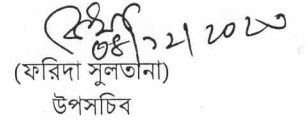 ০৪/১২/২০২৩
(ফরিদা সুলতানা)
উপসচিব